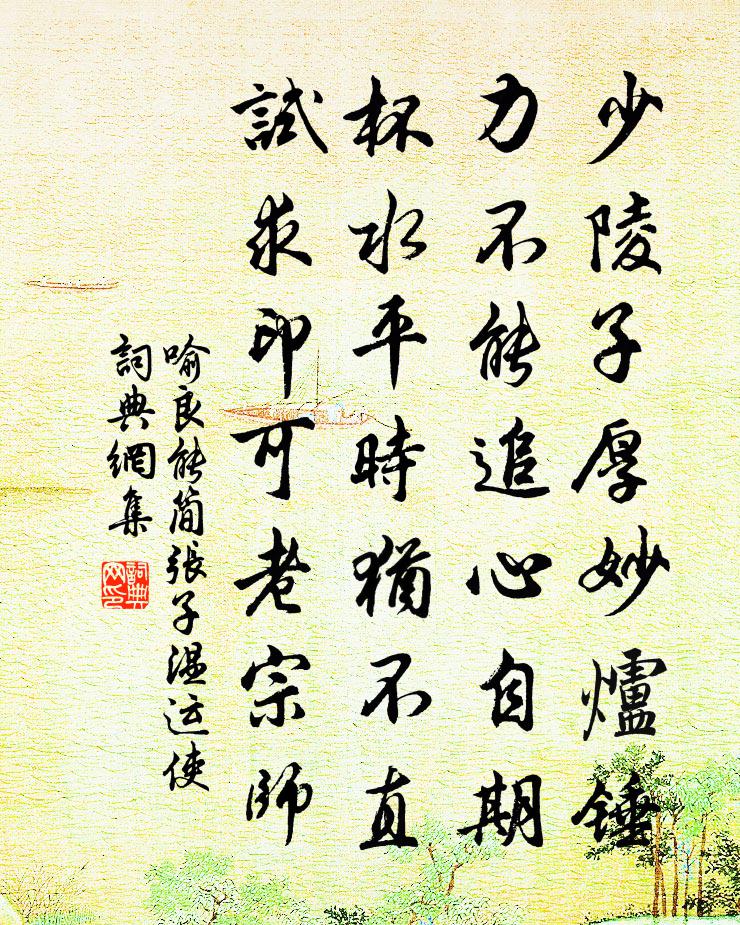 少陵子厚妙爐錘
力不能追心自期
杯水平時猶不直
試求印可老宗師
喻良能简張子温运使
詞典網集
詞典网印